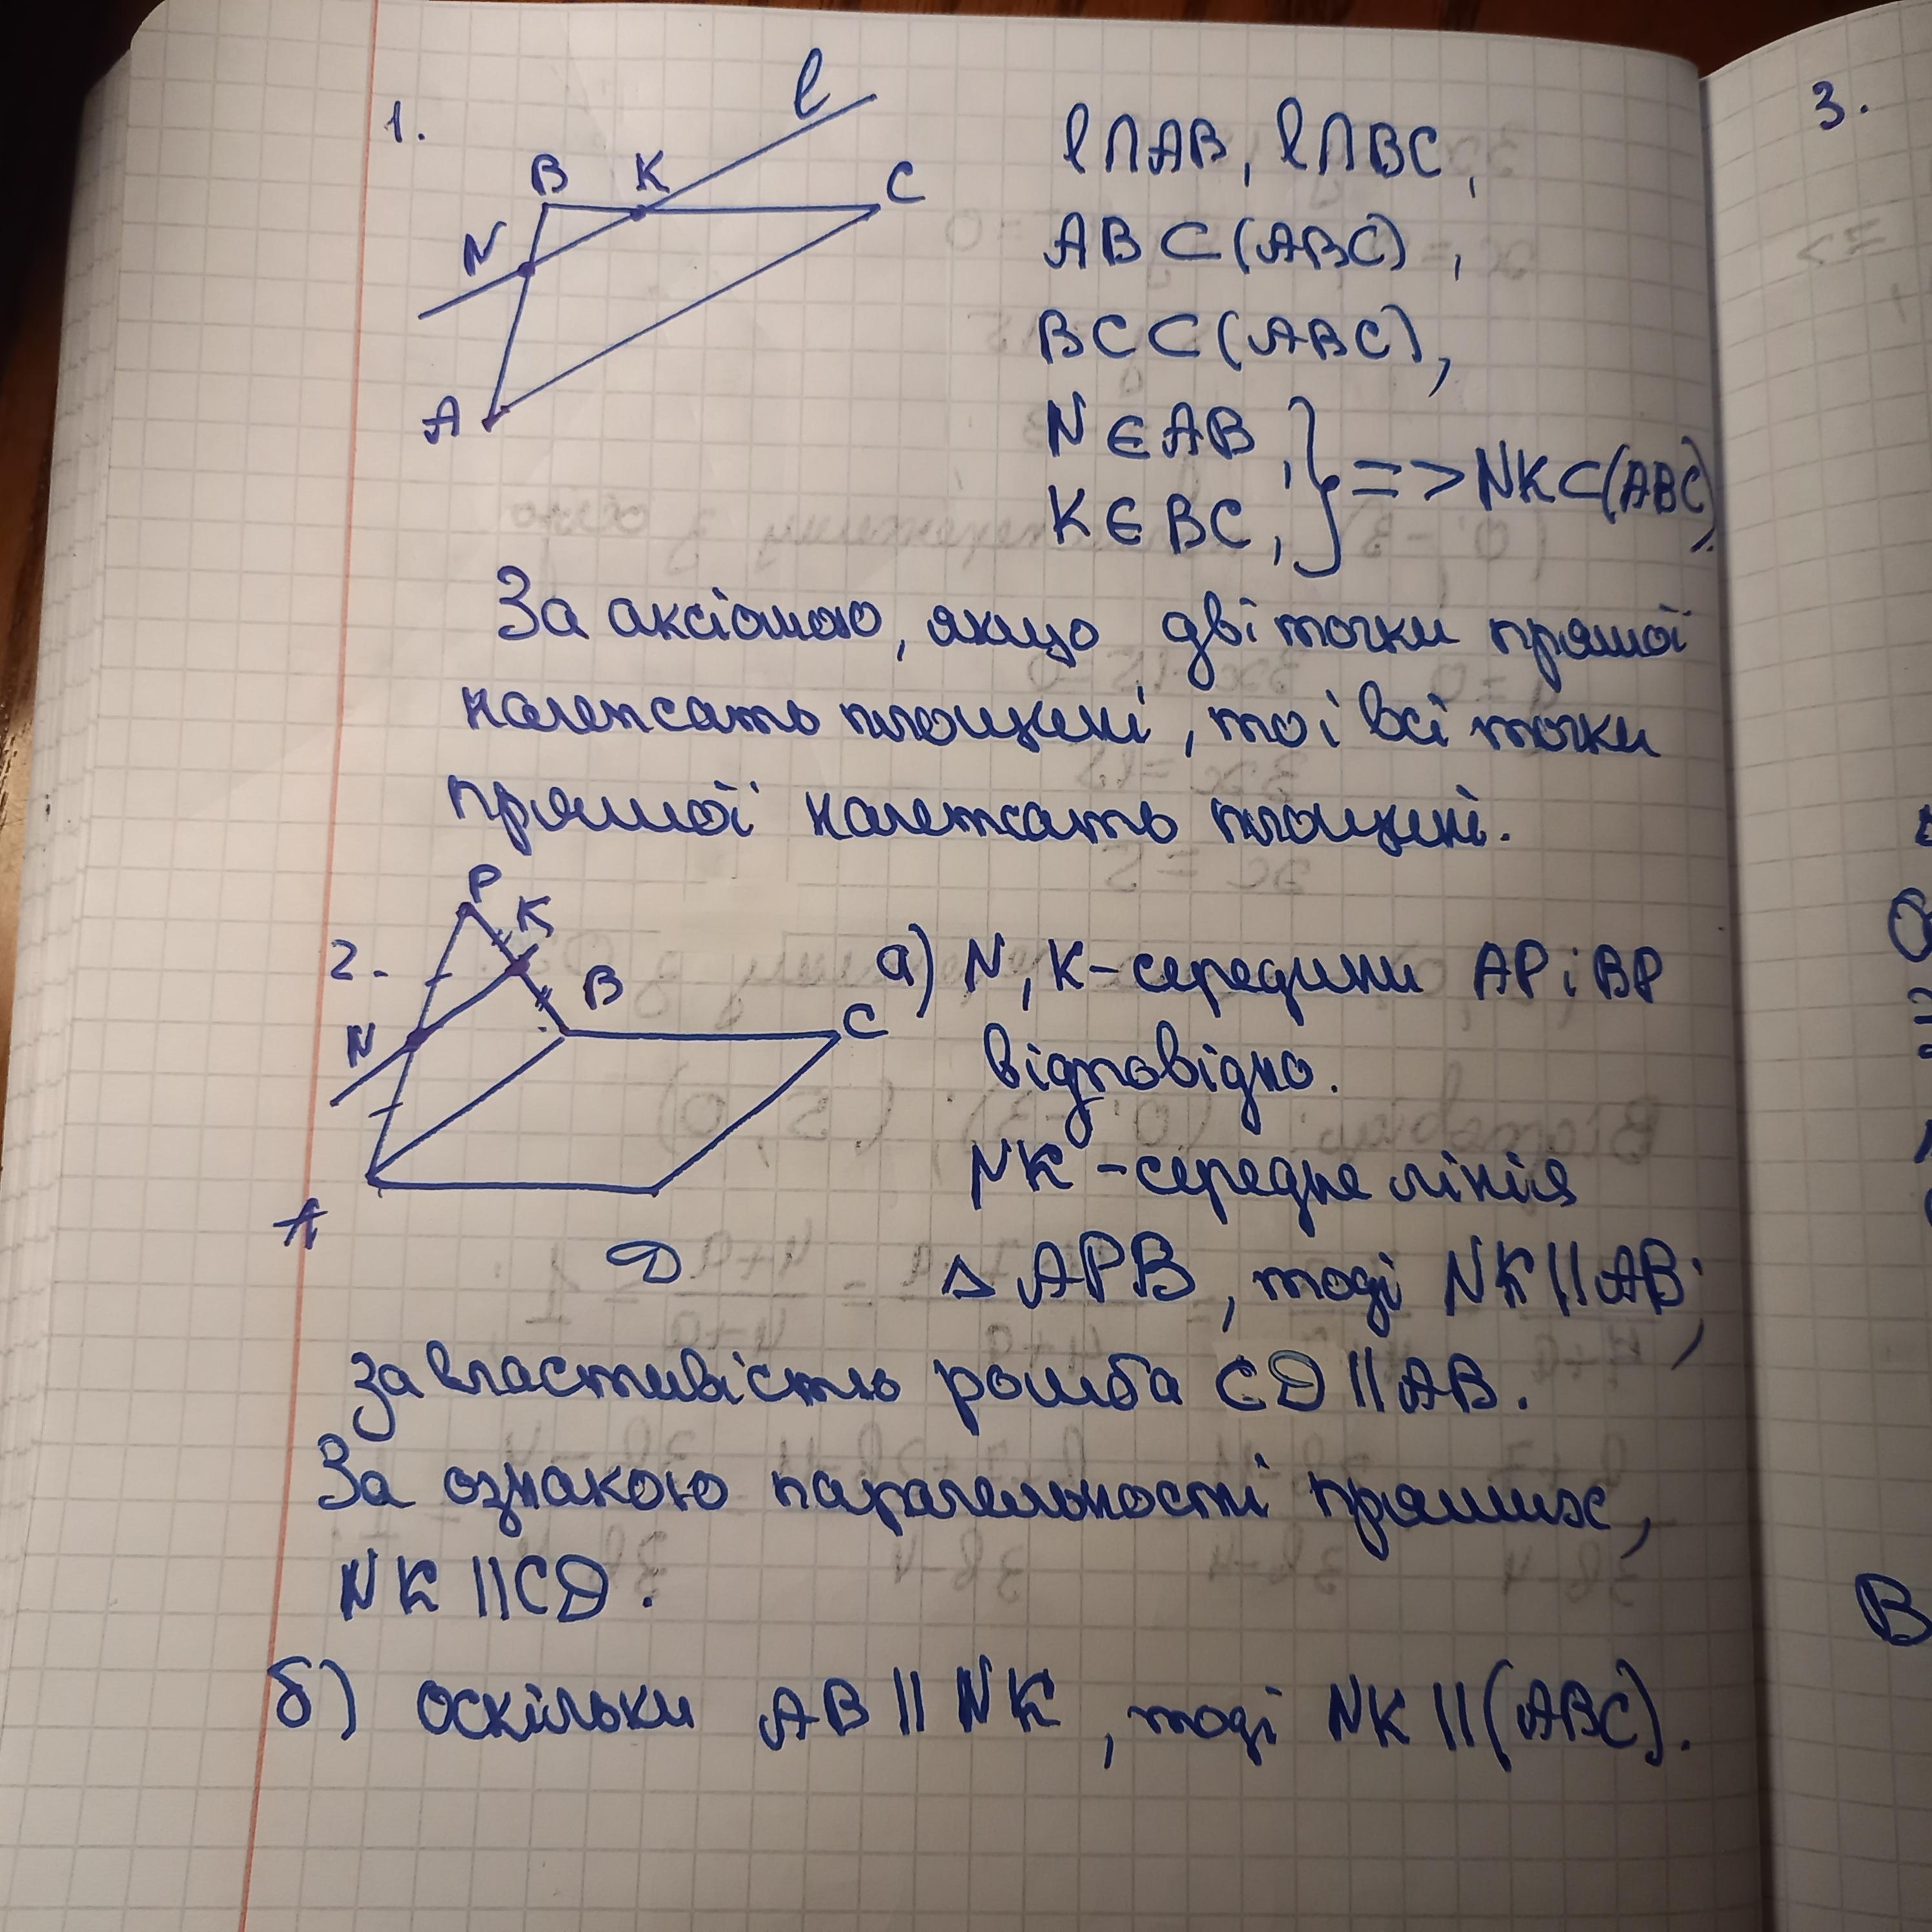 1.
l
B K C
N
A
l∩AB, l∩BC,
AB⊂(ABC),
BC⊂(ABC),
N∈AB,
K∈BC, } => NK⊂(ABC).
За аксіомою, якщо дві точки прямої
належать площині, то і всі точки
прямої належать площині.
2.
P
K
B
N
C
A
D
а) N, K - середини AP і BP
відповідно.
NK - середнє лінія
△ APB, тоді NK || AB;
за властивістю ромба CD || AB.
За ознакою паралельності прямих,
NK || CD.
б) оскільки AB || NK, тоді NK || (ABC).
3.
B